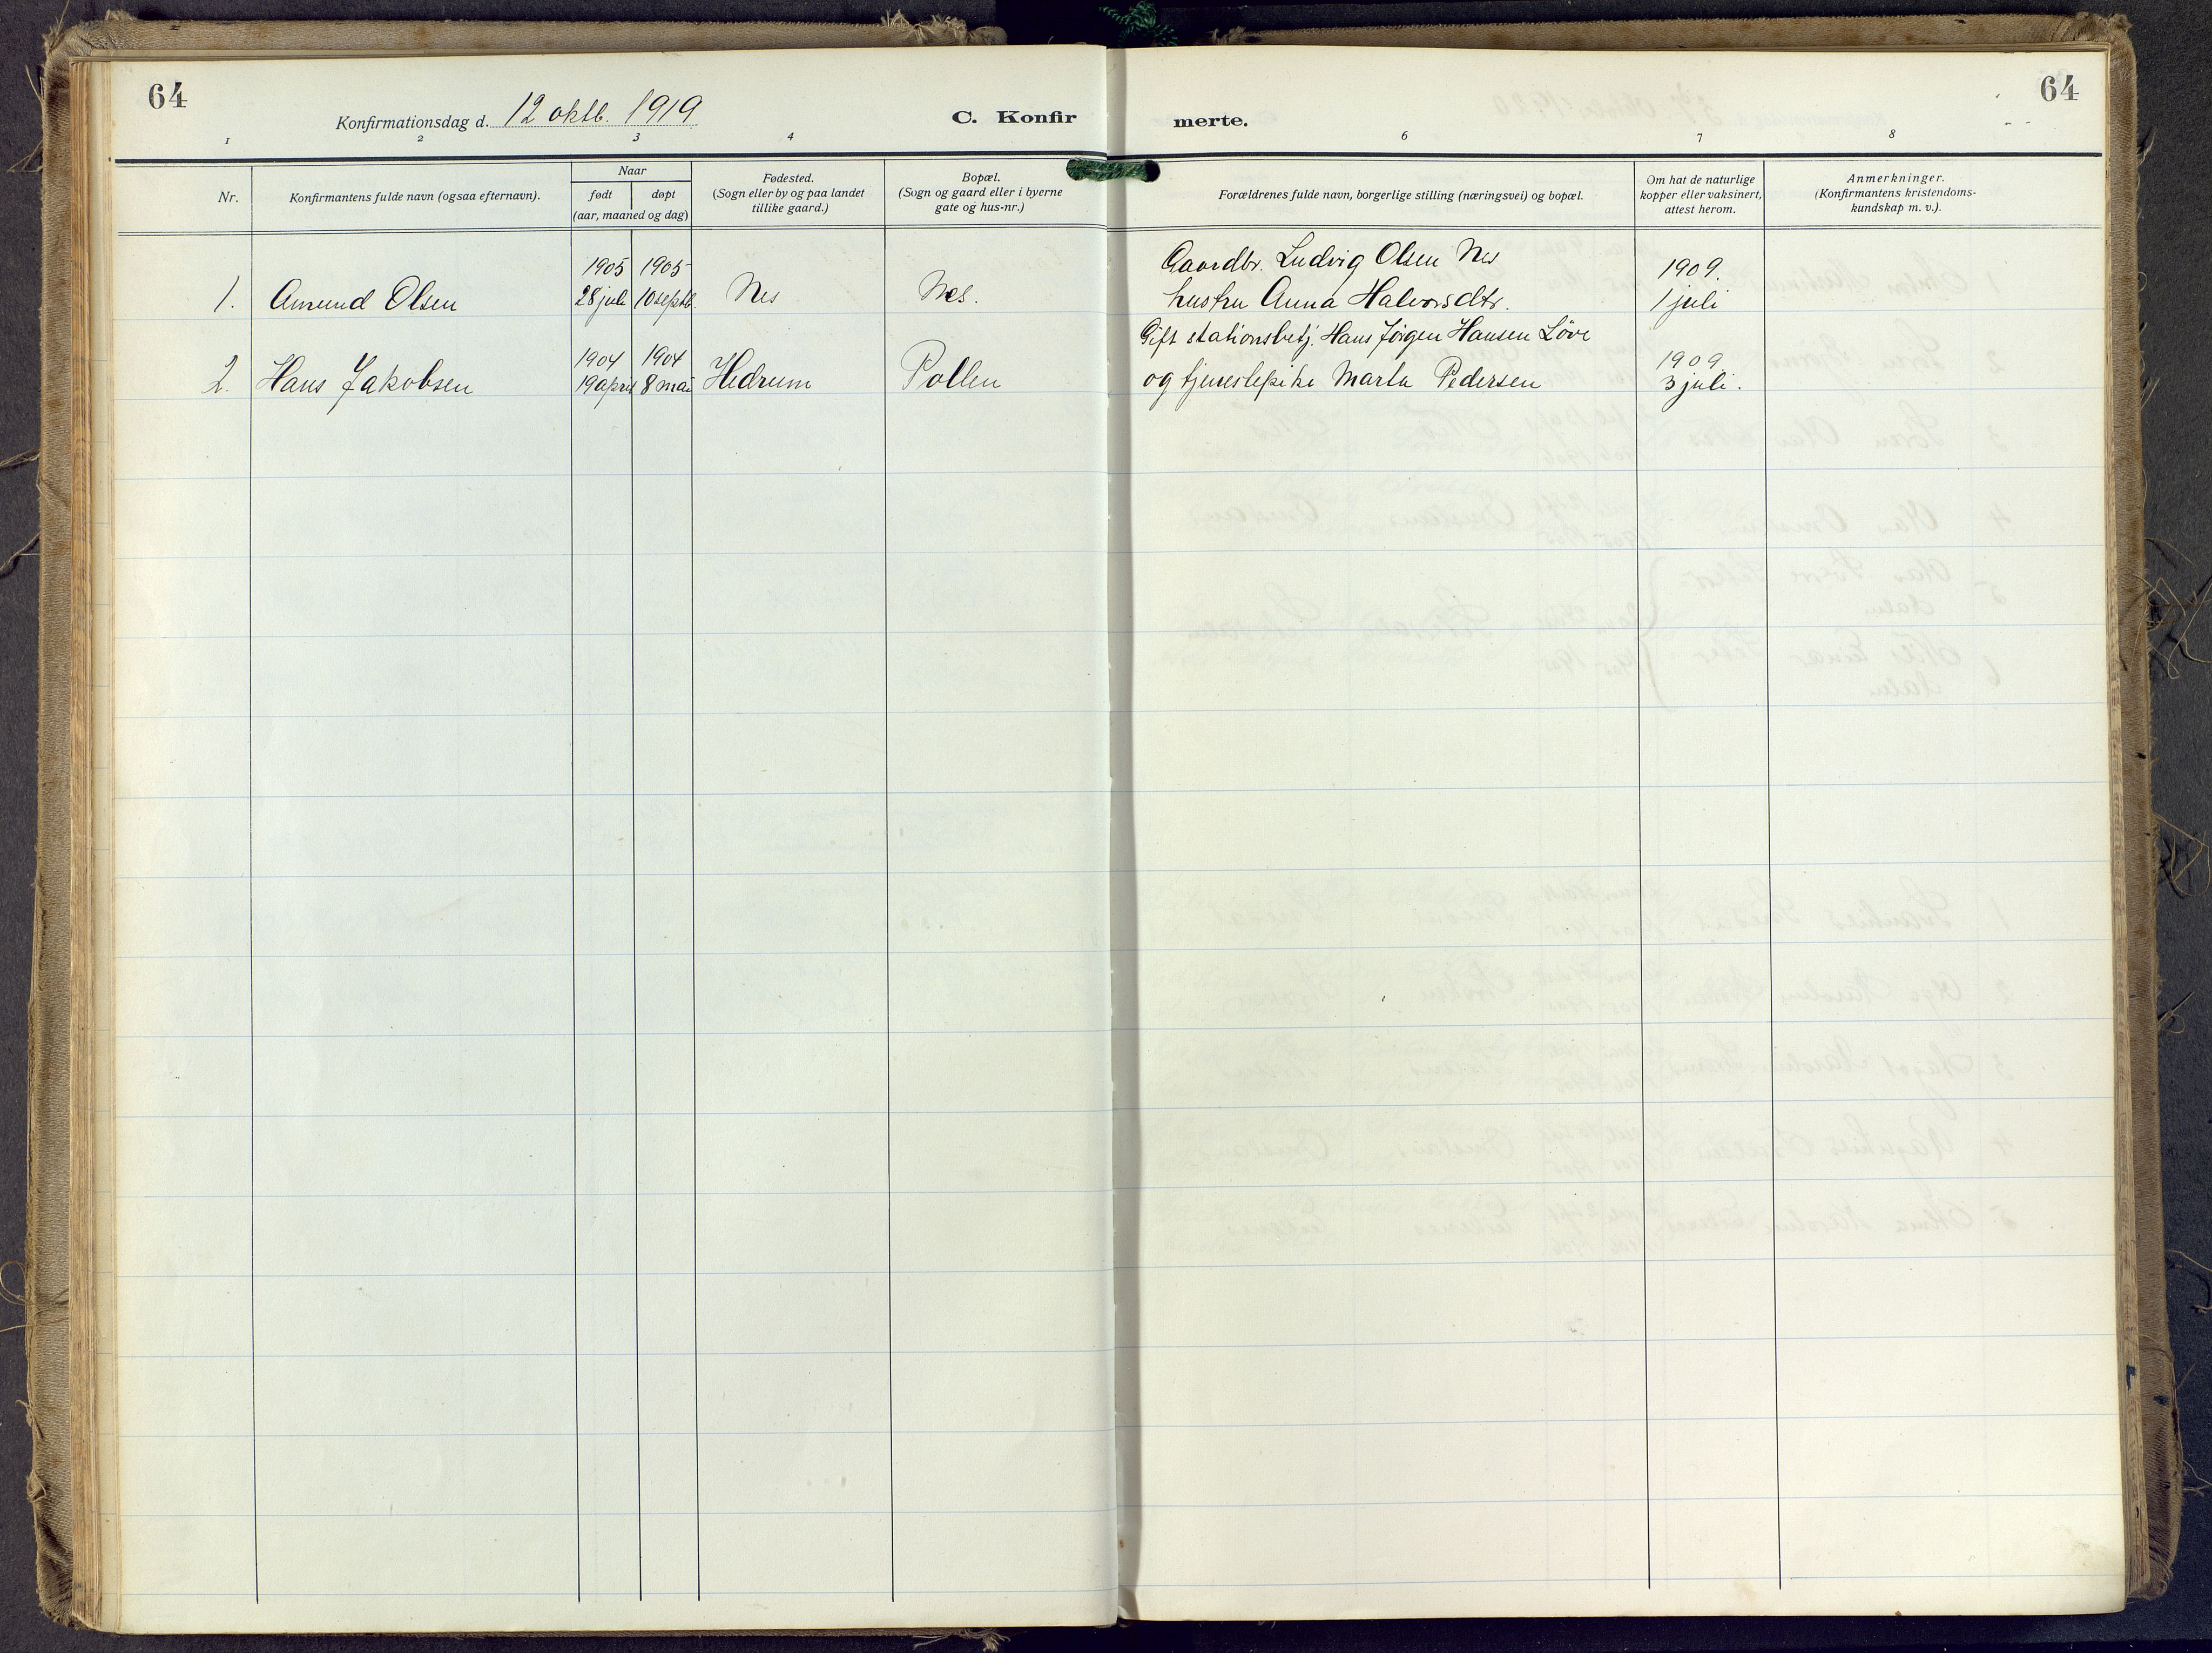 64
64
Konfirmationsdag d. 12 oktb. 1919
C. Konfir
merte.
1 2 3 4 6 7 8
Nr.
Konfirmantens fulde navn (ogsaa efternavn).
Naar
født døpt
(aar, maaned og dag)
Fødested.
(Sogn eller by og paa landet
tillike gaard.)
Bopæl.
(Sogn og gaard eller i byerne
gate og hus-nr.)
Forældrenes fulde navn, borgerlige stilling (næringsvei) og bopæl.
Om hat de naturlige
kopper eller vaksinert,
attest herom.
Anmerkninger.
(Konfirmantens kristendoms-
kundskap m. v.).
1905 1905 Gaardbr. Ludvig Olsen Nes 1909.
1. Amund Olsen 28 juli 10 septb. Nes Nes. hustru Anna Halvorsdtr. 1 juli
Gift stationsbetj. Hans Jørgen Hansen Löve
1904 1904 1909.
2. Hans Jakobsen 19 april 8 mai Hedrum Pollen og tjenestepike Marta Pedersen 3 juli.